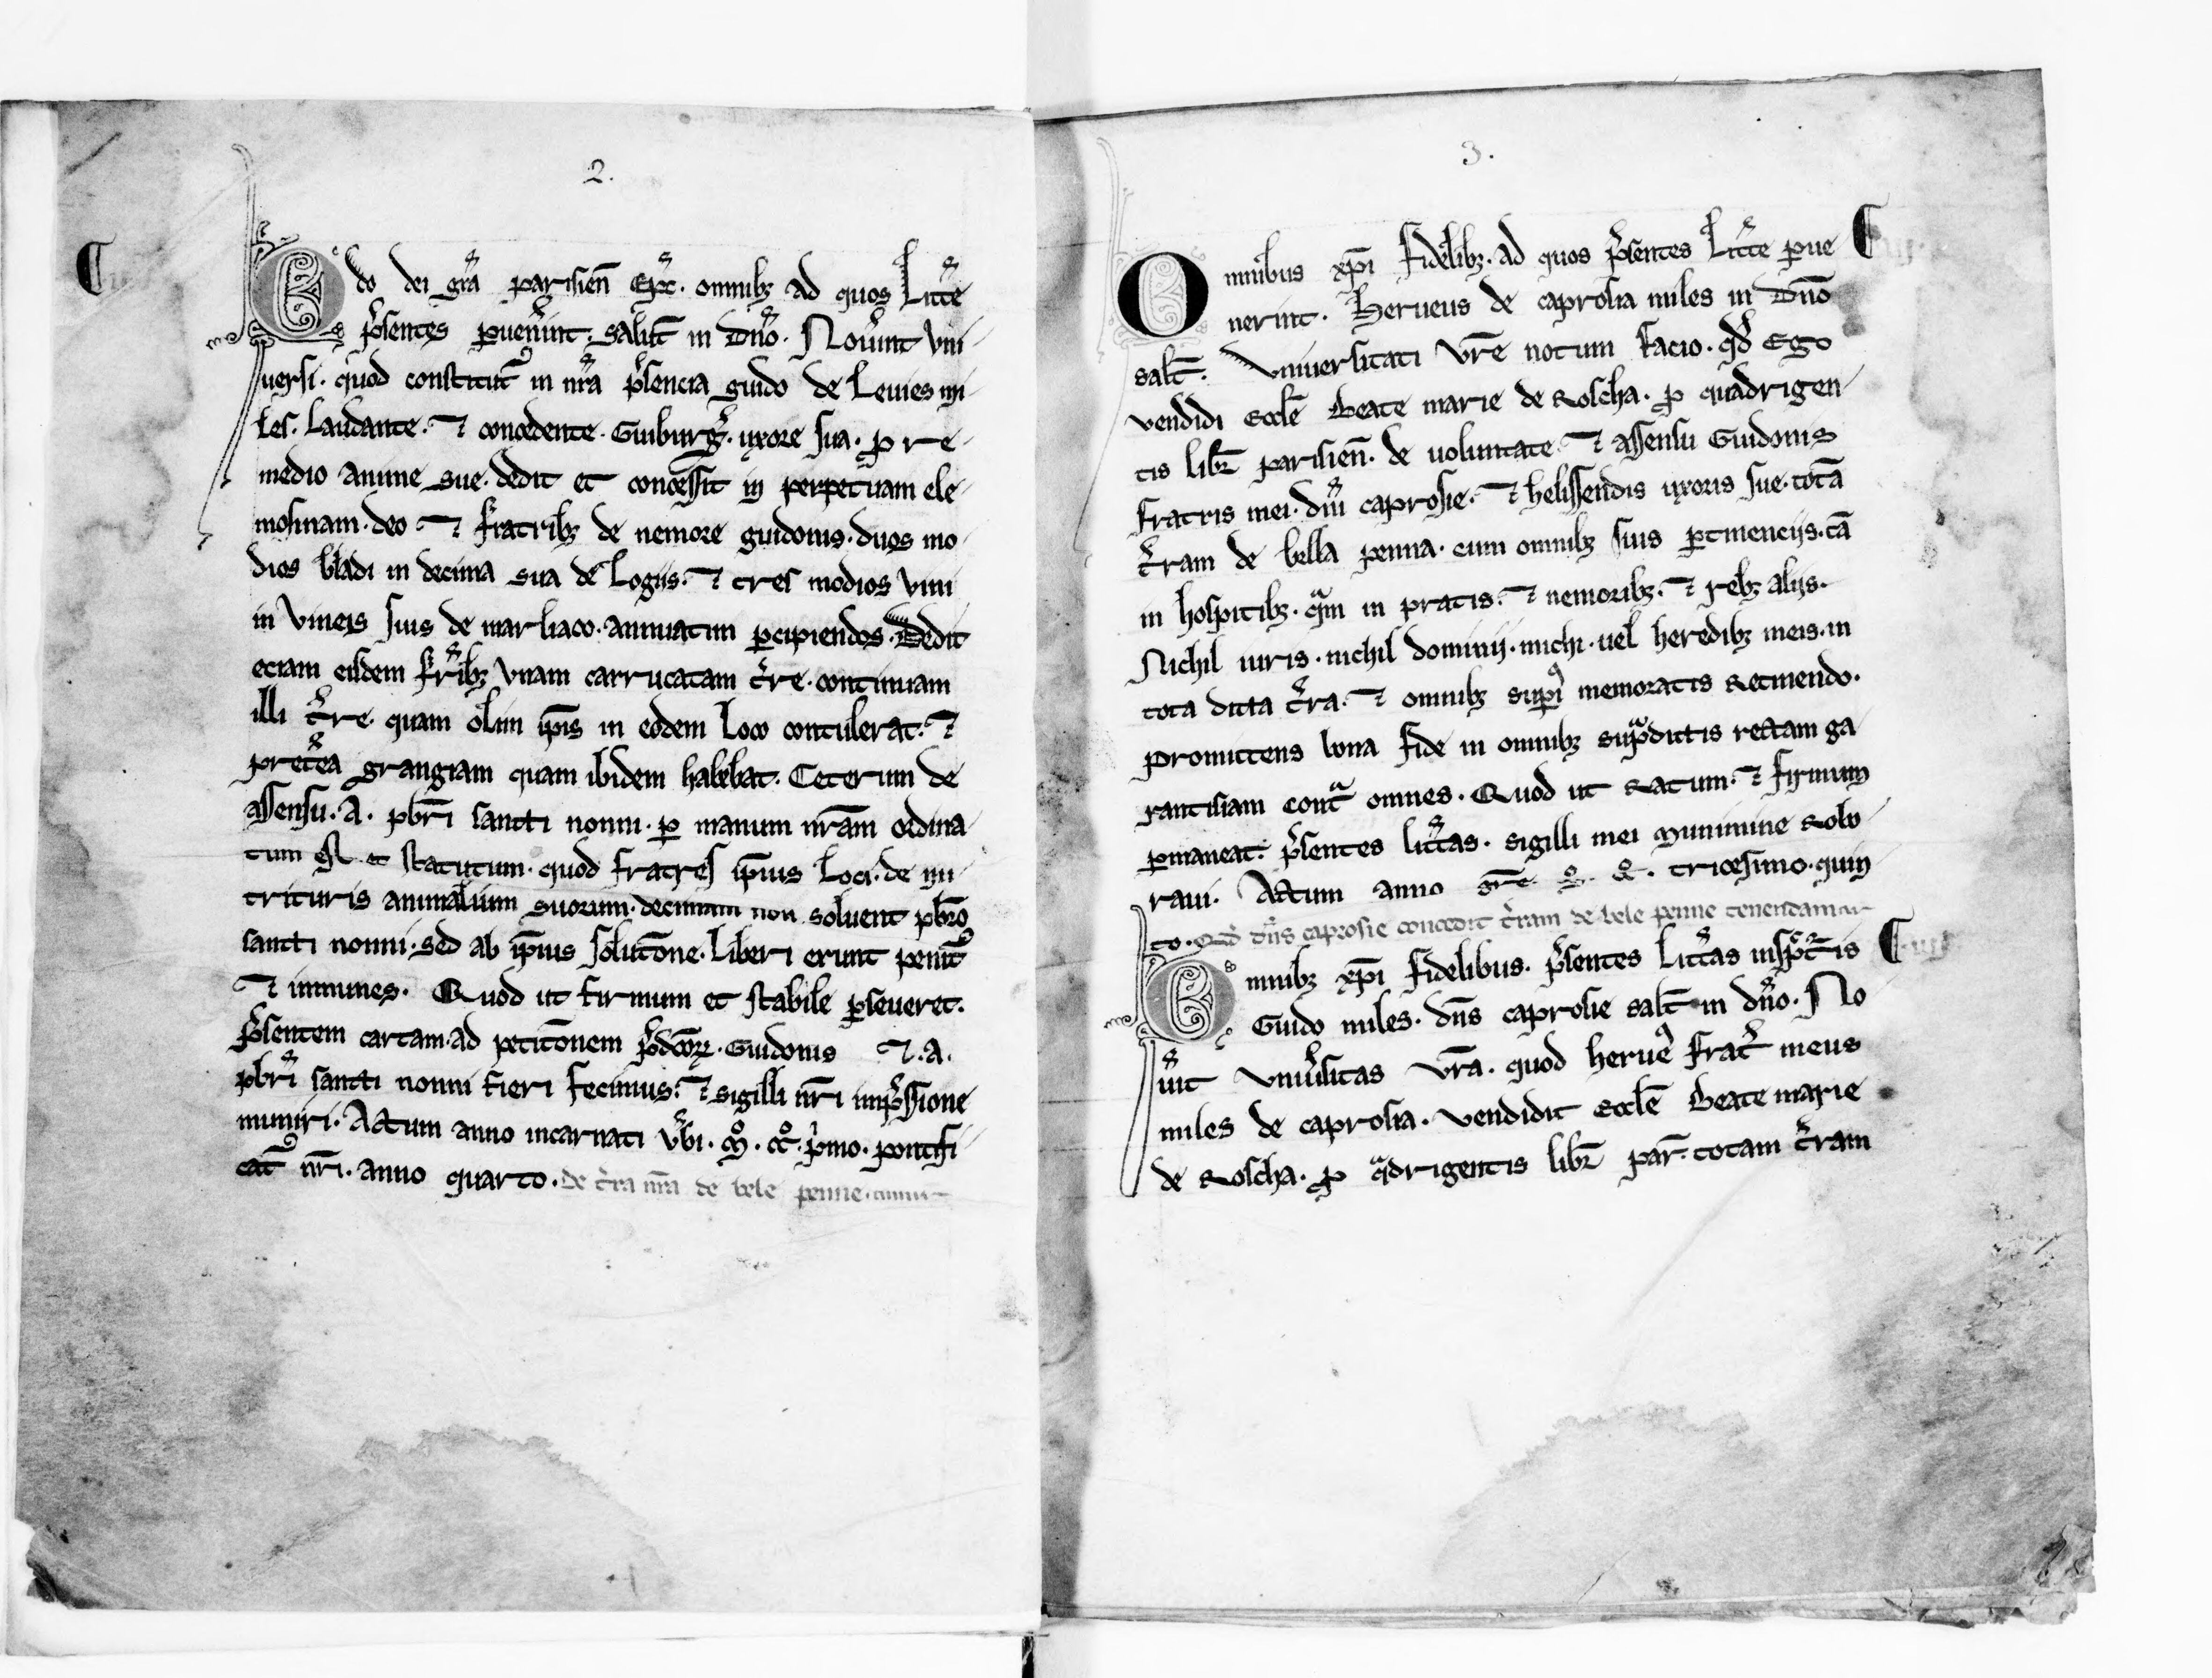 2.
Odo dei gr̄a parisien̄ ep̄c. omnibꝫ ad quos Litt̄e
p̄sentes ꝑuen̄int. salut̄ in Dn̄o. Nov̄int vni
uersi. quod constitutꝰ in nr̄a p̄sencia guido de Leuies mi
les. Laudante. ⁊ concedente. Guiburḡ. uxore sua. ꝓ re
medio anime sue. dedit et concessit in perpetuam ele
mosinam. deo ⁊ fratribꝫ de nemore guidonis. duos mo
dios bladi in decima sua de Logiis. ⁊ tres modios vini
in vineis suis de marliaco. annuatim ꝑcipiendos. Dedit
eciam eisdem fr̄ibꝫ vnam carrucatam t̄re. continuam
illi t̄re. quam olim ip̄is in eodem Loco contulerat. ⁊
pret̄ea grangiam quam ibidem habebat. Ceterum de
assensu. A. pbr̄i sancti nonni. ꝑ manum nr̄am ordina
tum est et statutum. quod fratres ip̄ius Loci. de nu
trituris animalium suorum. decimam non soluent pbr̄o
sancti nonni. sed ab ip̄ius solutōne. Liberi erunt penitꝰ
⁊ inmunes. Quod ut firmum et stabile ꝑseueret.
p̄sentem cartam. ad petitōnem p̄dc̄oꝝ. Guidonis ⁊. A.
pbr̄i sancti nonni fieri fecimus. ⁊ sigilli nr̄i imp̄ssione
muniri. Actum anno incarnati v̄bi. M̊. CC̊. p̄mo. pontifi
catꝰ nr̄i. anno quarto. De t̄ra nr̄a de bele penne.
3.
Omnibus xp̄i fidelibꝫ. ad quos p̄sentes Litt̄e ꝑue
nerint. Herueus de caprosia miles in Dn̄o
salt̄. Vniuersitati vr̄e notum facio. qd̄ Ego
vendidi eccl̄e Beate marie de Roscha. ꝓ quadrigen
tis libr̄ parisien̄. de uoluntate ⁊ assensu Guidonis
fratris mei. dn̄i caprosie. ⁊ helissendis uxoris sue. totā
t̄ram de bella penna. cum omnibꝫ suis ꝑtinenciis. tā
in hospitibꝫ. qͣm in pratis. ⁊ nemoribꝫ. ⁊ rebꝫ aliis.
Nichil iuris. nichil dominij. michi. uel heredibꝫ meis. in
tota dicta t̄ra. ⁊ omnibꝫ supi̾ memoratis Retinendo.
promittens bona fide in omnibꝫ supͣdictis rectam ga
rantisiam contͣ omnes. Quod ut Ratum. ⁊ firmum
ꝑmaneat. p̄sentes litt̄as. sigilli mei munimine Robo
raui. Actum anno gr̄e. M̊. CC̊. tricesimo. quin
to. Qd̄ dn̄s caprosie concedit t̄ram de bele penne tenendam
Omnibꝫ xp̄i fidelibus. p̄sentes Litt̄as insp̄cturis
Guido miles. dn̄s caprosie salt̄ in dn̄o. No
u̾it vniu̾sitas vr̄a. quod herueꝰ frat̄ meus
miles de caprosia. vendidit eccl̄e Beate marie
de Roscha. ꝓ qͣdrigentis libr̄ par̄. totam t̄ram